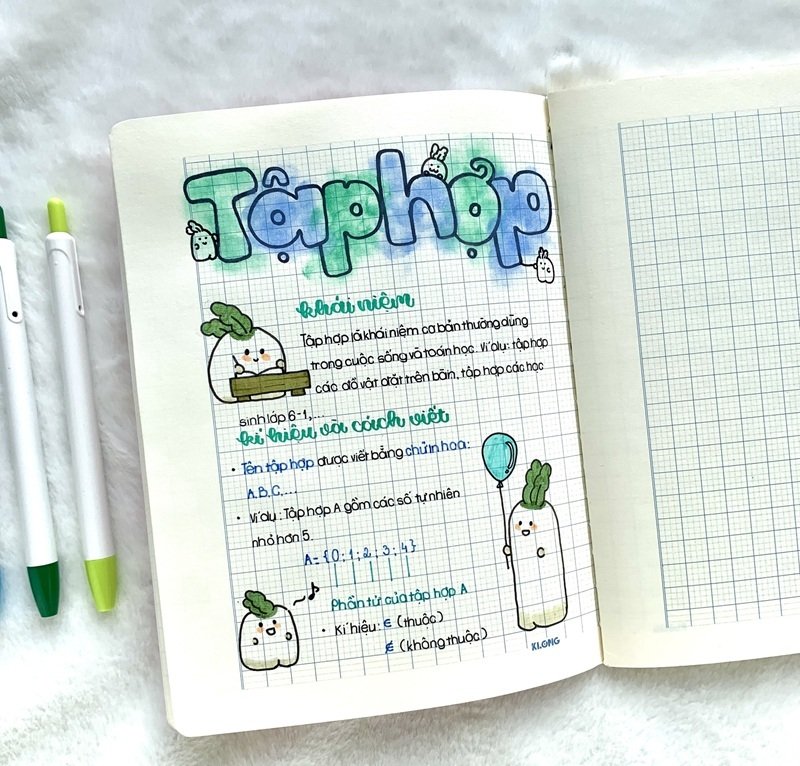 Tập hợp
khái niệm
Tập hợp là khái niệm cơ bản thường dùng
trong cuộc sống và toán học. Ví dụ: tập hợp
các đồ vật đặt trên bàn, tập hợp các học
sinh lớp 6-1,...
kí hiệu và cách viết
• Tên tập hợp được viết bằng chữ in hoa:
A,B,C,...
• Ví dụ: Tập hợp A gồm các số tự nhiên
nhỏ hơn 5.
A = {0; 1; 2; 3; 4}
Phần tử của tập hợp A
• Kí hiệu: ∈ (thuộc)
∉ (không thuộc)
XI.ONG